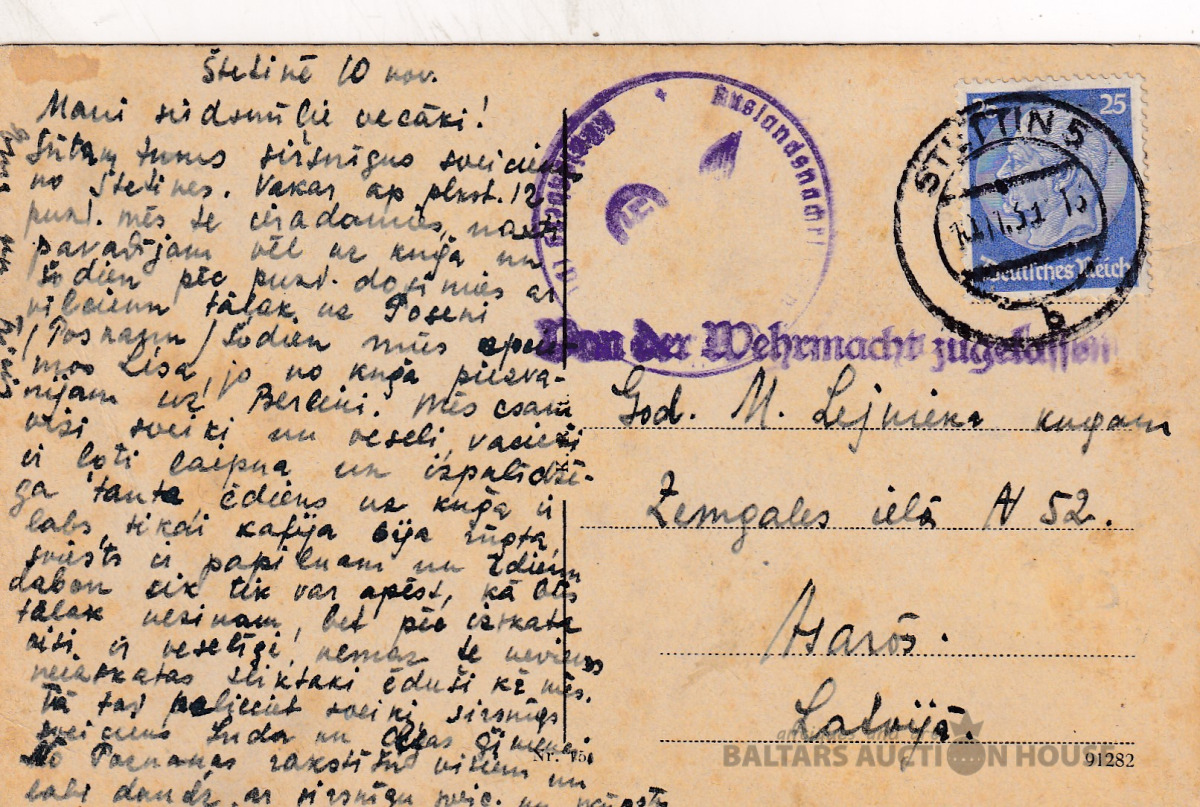 Štetinē 10 nov.
Mani sirdsmīļie vecāki!
Sūtam jums sirsnīgus sveicienus
no Štetines. Vakar ap plkst. 12
pusd. mēs te ieradamies, nakti
pavadījam vēl uz kuģa un
šodien pēc pusd. dosimies ar
vilcienu tālak uz Poseni
/Posnaņu/ Šodien mūs
Lisa, jo no kuģa piezva-
nijam uz Berlini. Mēs esam
visi sveiki un veseli, vacieši
ir ļoti laipna un izpalīdzi-
ga tauta ēdiens uz kuģa ir
labs, tikai kafija bija rūgta,
sviests ir papilnam un ēdienu
dabon tik var apēst, kā būs
tālak nezinam, bet pēc izskata
visi ir veselīgi, nemaz te neviens
neizskatas sliktaki ēduši kā mēs.
Tā tad palieciet sveiki, sirsnīgs
sveiciens un ģimenei
No Poznaņas rakstīšu visiem un
labi daudz, ar sirsnīgu sveic. un
Auslandsnachri
Von der Wehrmacht zugelassen
25
Deutsches Reich
STETTIN 5
b
God. M. Lejnieka kungam
Zemgales ielā N 52.
Asarōs.
Latvijā.
BALTARS AUCTION HOUSE
91282